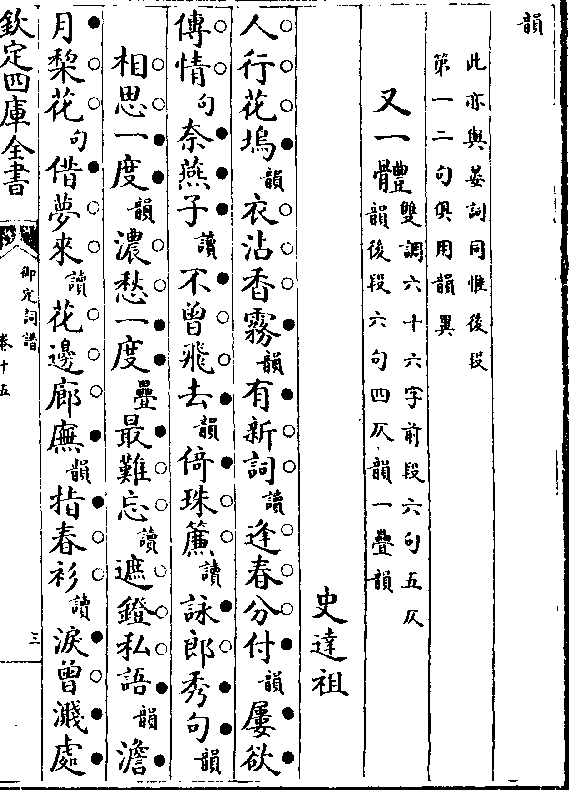 韻
此亦與晏詞同惟後段
第一二句俱用韻異
又一體雙調六十六字前段六句五仄
韻後段六句四仄韻一疊韻
史達祖
人行花塢韻衣沾香霧韻有新詞讀逢春分付韻屢欲
傳情句奈燕子讀不曾飛去韻倚珠簾讀詠郎秀句韻
相思一度韻濃愁一度疊最難忘讀遮鐙私語韻澹
月棃花句借夢來讀花邊廊廡韻指春衫讀淚曾濺處
欽定四庫全書
御定詞譜
卷十五
三